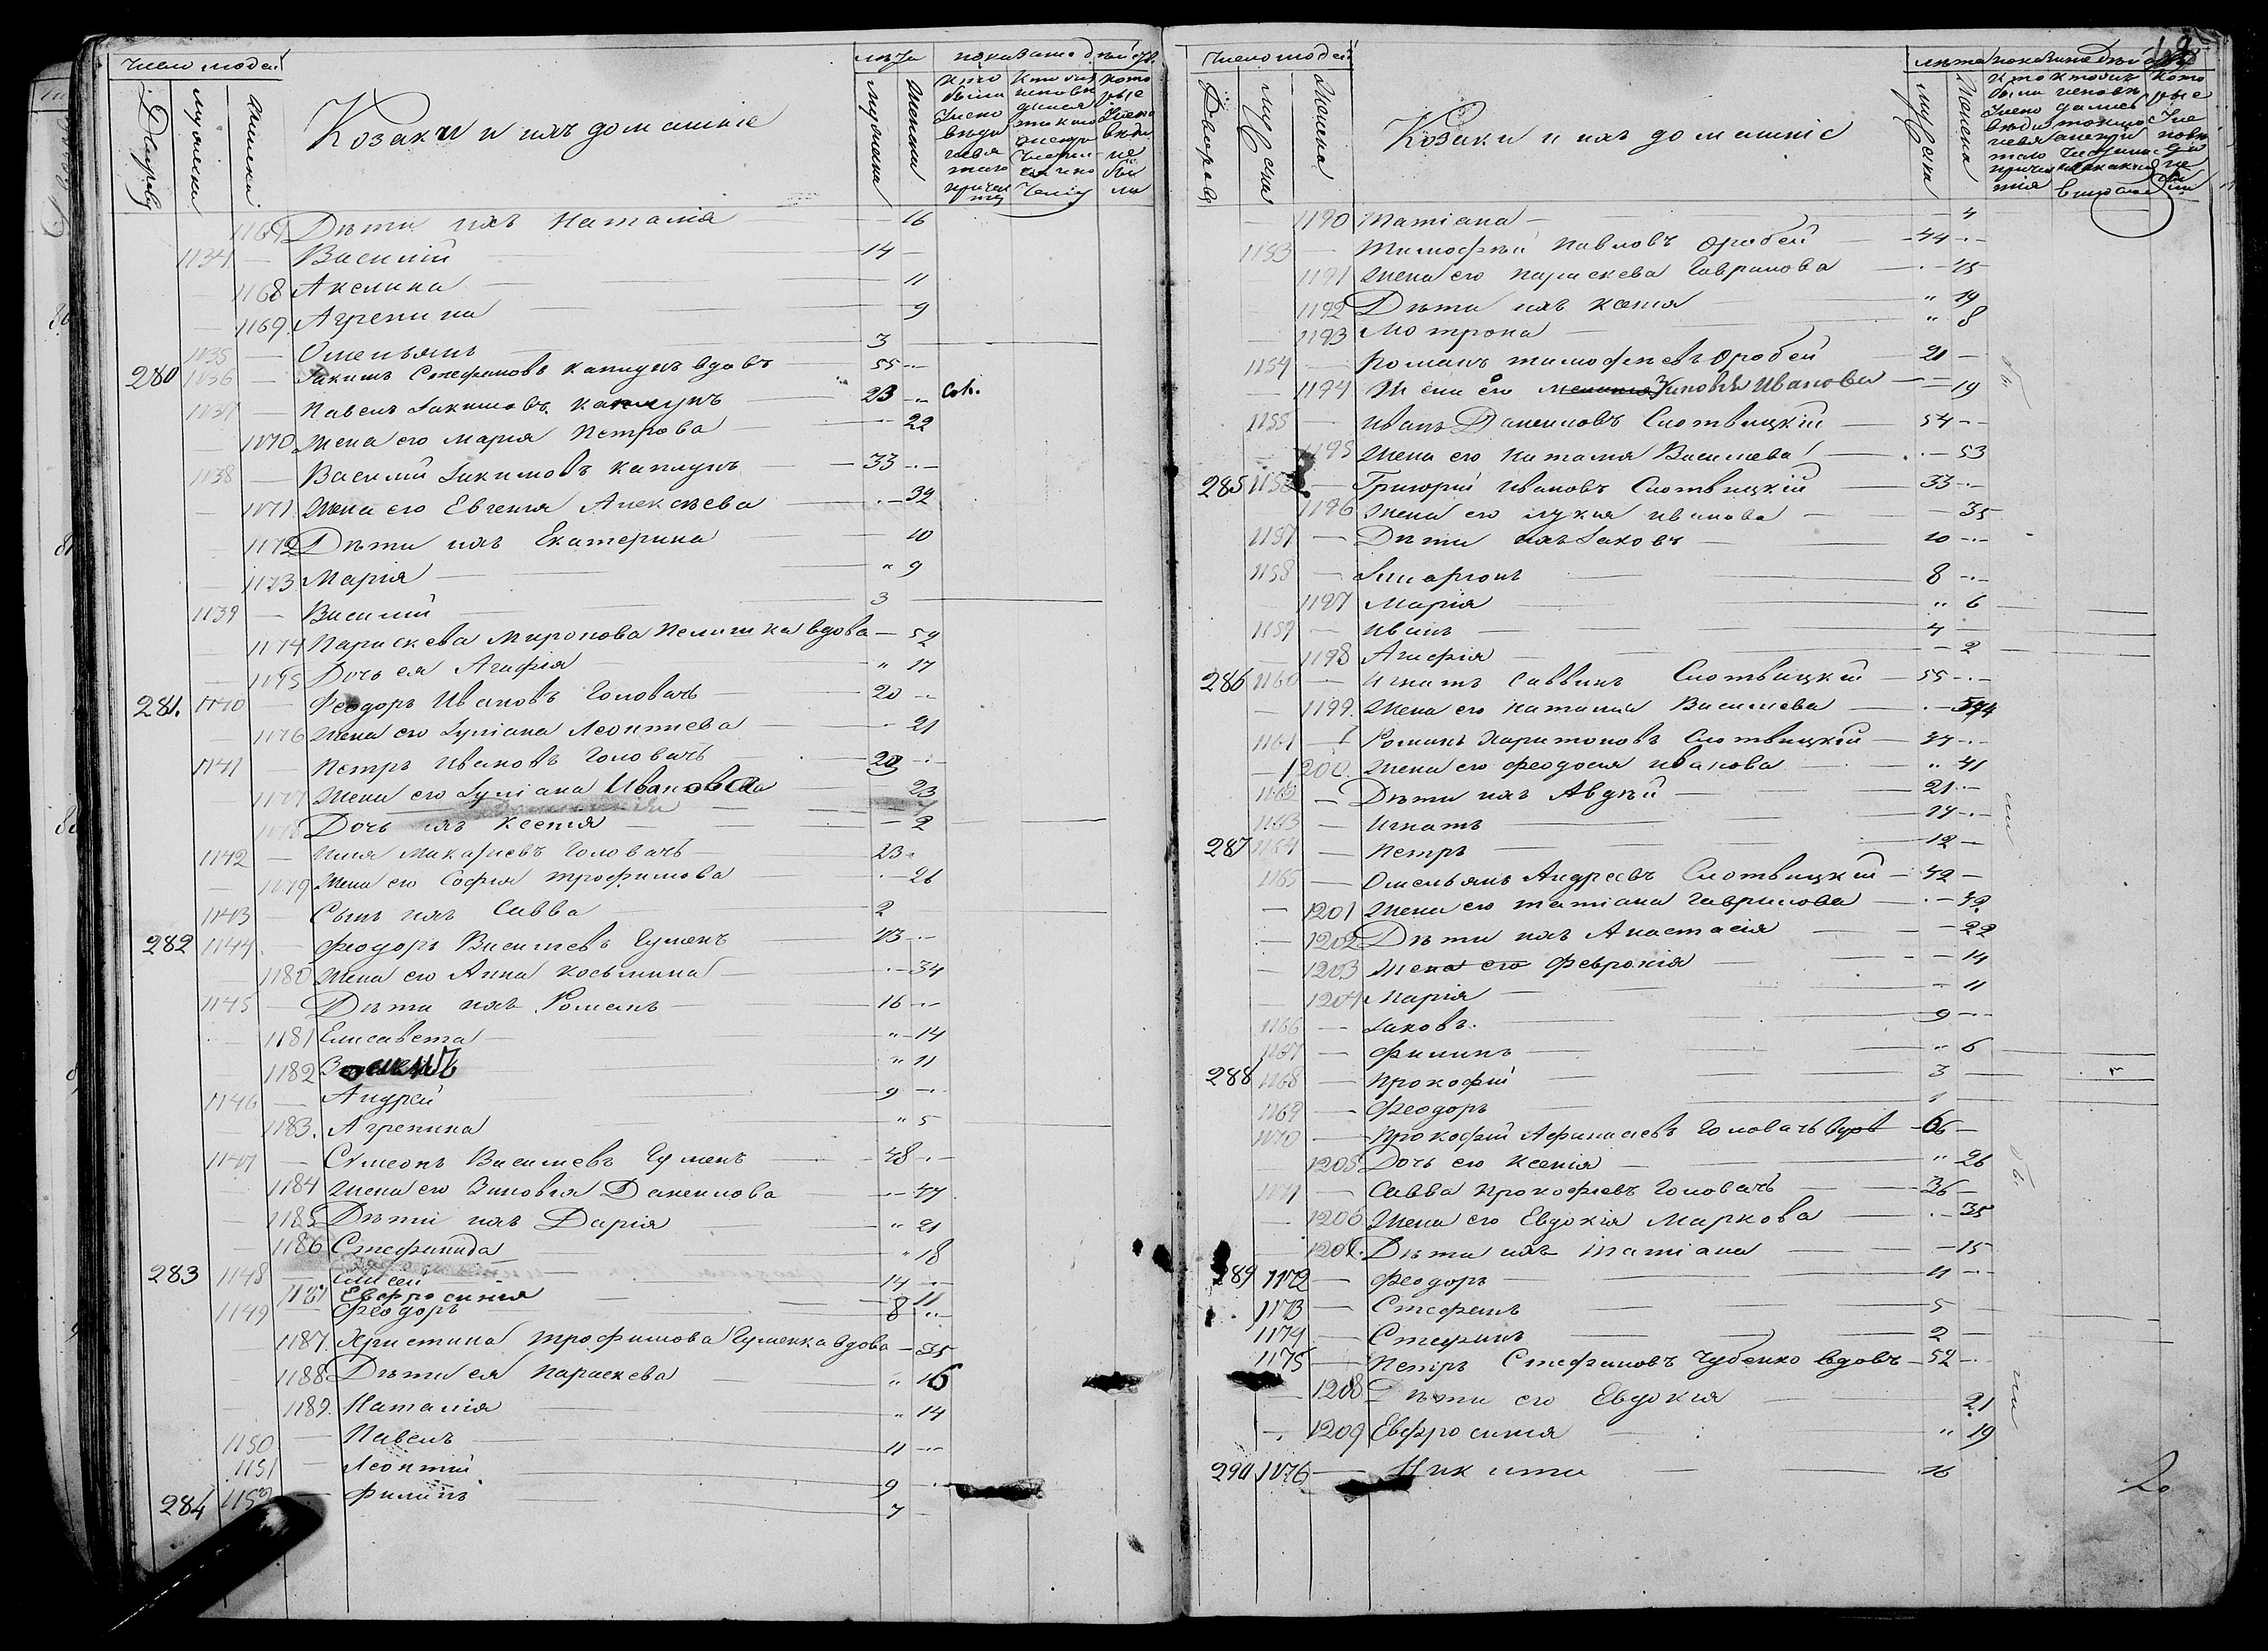 Число людей
Дворовъ
мужеска
женска
Козаки и ихъ домашніе
лѣта
мужеска
женска
показаніе дѣйств.
1167 Дѣти ихъ Наталія 16
1134 Василій 14
1168 Акилина 11
1169 Агрепина 9
1135 Омельянъ 3
280 1136 Іакимъ Стефановъ Каплунъ вдовъ 55
1137 Павелъ Іакимовъ Каплунъ 23
1170 Жена его Марія Петрова 22
1138 Василій Іакимовъ Каплунъ 33
1171 Жена его Евгенія Алексѣева 32
1172 Дѣти ихъ Екатерина 10
1173 Марія 9
1139 Василій 3
1174 Параскева Миронова вдова 52
1175 Дочь ея Агафія 17
281. 1140 Феодоръ Ивановъ Головачъ 20
1176 Жена его Іуліана Леонтіева 21
1141 Петръ Ивановъ Головачъ 29
1177 Жена его Іуліана Иванова 23
1178 Дочь ихъ Ксенія 2
1142 Илія Макаріевъ Головачъ 23
1179 Жена его Софія Трофимова 26
1143 Сынъ ихъ Савва 2
282 1144 Феодоръ Василіевъ Гуменъ 43
1180 Жена его Анна Косьмина 34
1145 Дѣти ихъ Романъ 16
1181 Елисавета 14
1182 11
1146 Андрей 9
1183. Агрепина 5
1147 Симеонъ Василіевъ Гуменъ 48
1184 Жена его Зиновія Даниилова 47
1185 Дѣти ихъ Дарія 21
1186 Стефанида 18
283 1148 Елисей 14
1187 Евфросинія 11
1149 Феодоръ 8
1187. Христина Трофимова Гуменка вдова 35
1188 Дѣти ея Параскева 16
1189. Наталія 14
1150 Павелъ 11
1151 Леонтій 9
284 1152 Филипъ 7
Число людей
Дворовъ
мужеска
женска
Козаки и ихъ домашніе
лѣта
мужеска
женска
1190 Татіана 4
1153 Тимофѣй Павловъ Оробей 44
1191 Жена его Параскева Гаврилова 45
1192 Дѣти ихъ Ксенія 19
1193 Мотрона 8
1154 Романъ Тимофѣевъ Оробей 21
1194 Жена его Зиновія Иванова 19
1155 Иванъ Данииловъ Слотвицкій 54
1195 Жена его Наталія Василіева 53
285 1156 Григорій Ивановъ Слотвицкій 33
1196 Жена его Лукія Иванова 35
1157 Дѣти ихъ Іаковъ 10
1158 Іларіонъ 8
1197 Марія 6
1159 Иванъ 4
1198 Агафія 2
286 1160 Игнатъ Саввинъ Слотвицкій 55
1199. Жена его Наталія Василіева 54
1161 Романъ Харитоновъ Слотвицкій 47
1200. Жена его Феодосія Иванова 41
1162 Дѣти ихъ Авдѣй 21
1163 Игнатъ 17
287 1164 Петръ 12
1165 Омельянъ Андреевъ Слотвицкій 42
1201 Жена его Татіана Гаврилова 42
1202 Дѣти ихъ Анастасія 22
1203 Жена его Февронія 14
1204 Марія 11
1166 Іаковъ. 9
1167 Филипъ 6
288 1168 Прокофій 3
1169 Феодоръ 1
1170 Прокофій Афанасіевъ Головачъ вдов 66
1205 Дочь его Ксенія 26
1171 Савва Прокофіевъ Головачъ 36
1206 Жена его Евдокія Маркова 35
1207. Дѣти ихъ Татіана 15
289 1172 Феодоръ 11
1173 Стефанъ 5
1174 Стефанъ 2
1175 Петръ Стефановъ Чубенко вдовъ 52
1208 Дѣти его Евдокія 21
1209 Евфросинія 19
290 1176 Никита 16